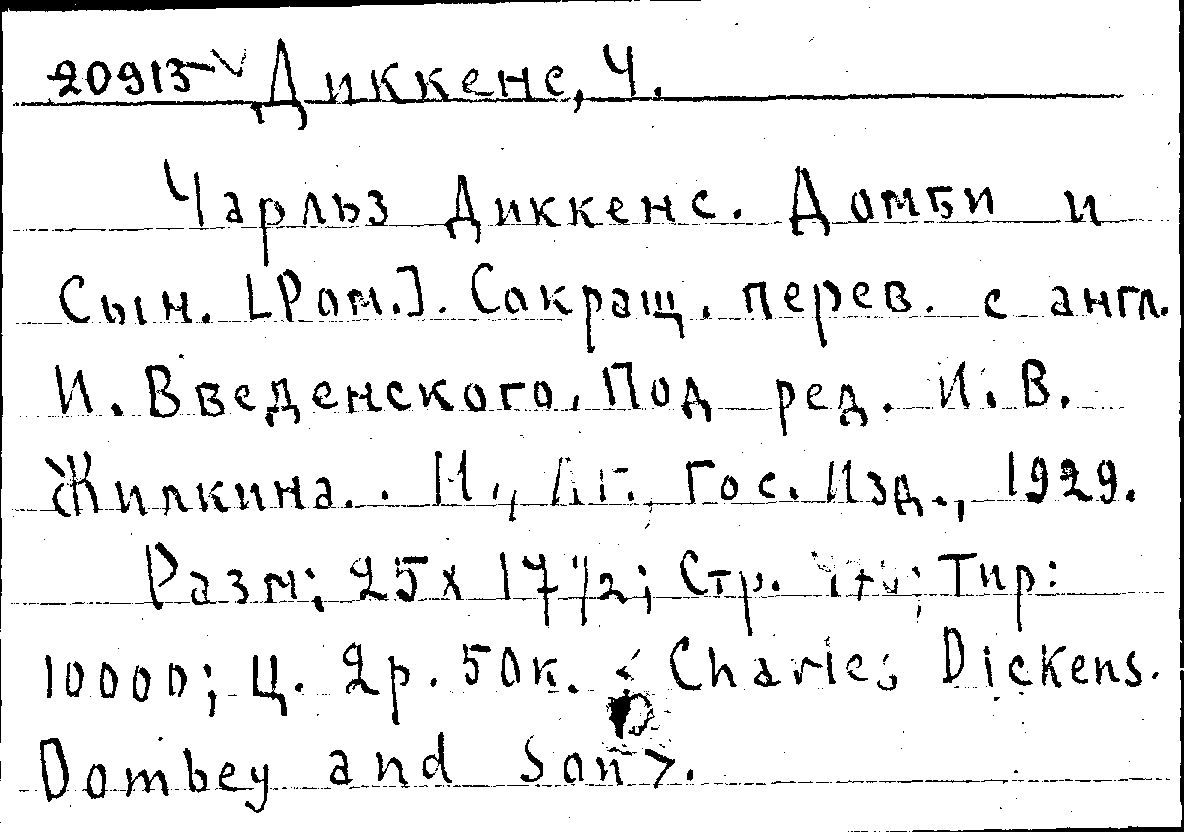 20915 Диккенс, Ч.
Чарльз Диккенс. Домби и
Сын. [Ром.]. Сокращ. перев. с англ.
И. Введенского, Под ред. И. В.
Жилкина. . М., Лг., Гос. Изд., 1929.
Разм; 25 x 17 1/2; Стр. Тир:
10000; Ц. 2р. 50к. < Charles Dickens.
Dombey and Son >.